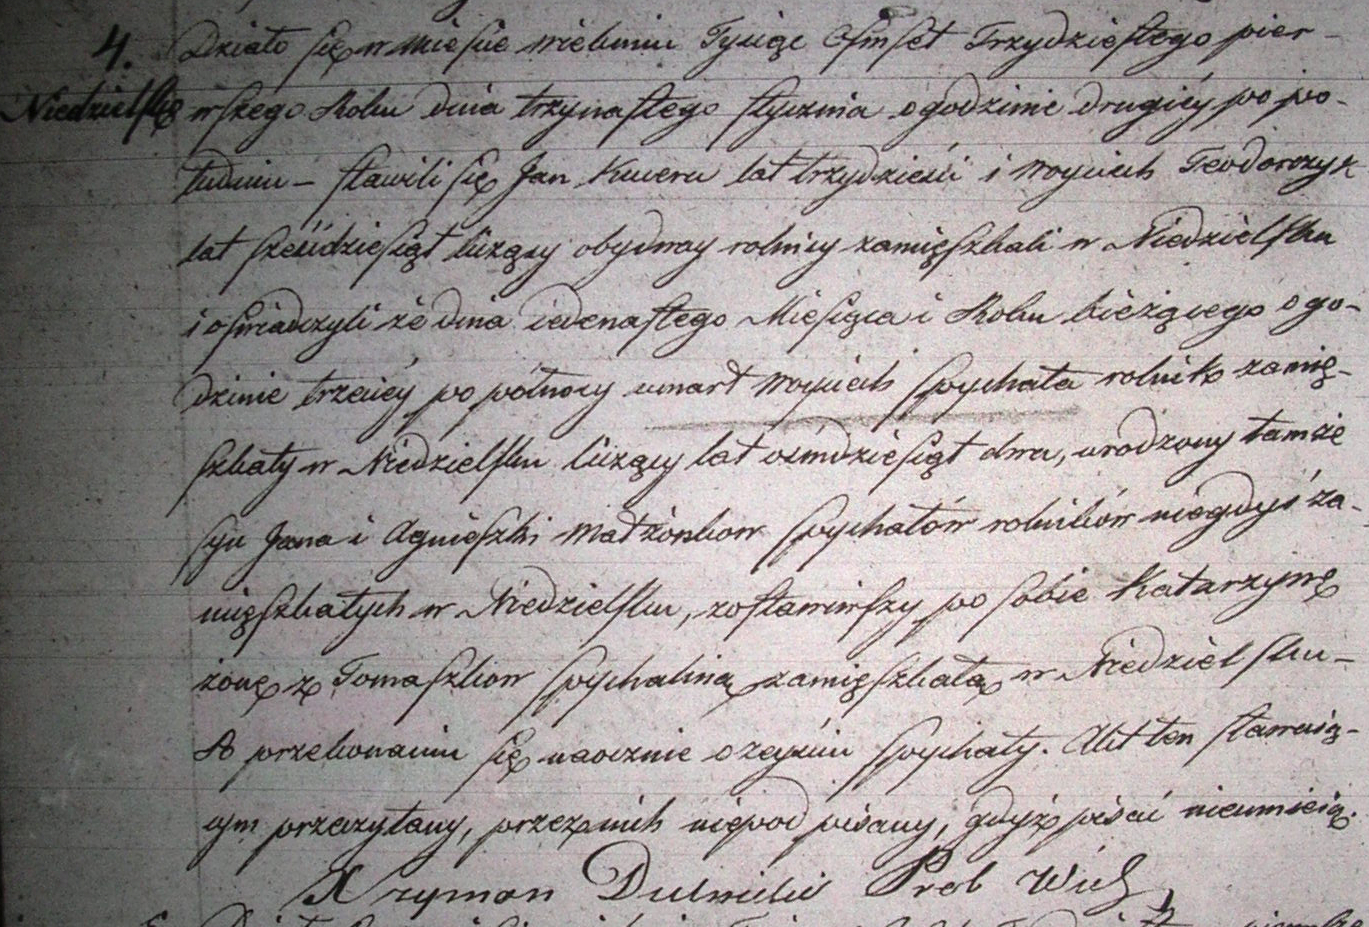 4. Działo się w Mieście Wieluniu Tysiąc Ośmset Trzydziestego pier-
Niedzielsko wszego Roku dnia trzynastego stycznia o godzinie drugiéy po po-
łudniu – stawili się Jan Kucera lat trzydzieści i Woyciech Teodorczyk
lat sześćdziesiąt liczący obydway rolnicy zamięszkali w Niedzielsku
i oświadczyli że dnia iedenastego Miesiąca i Roku bieżącego o go-
dzinie trzeciéy po północy umarł Woyciech Spychała rolnik zamię-
szkały w Niedzielsku liczący lat ośmdziesiąt dwa, urodzony tamże
syn Jana i Agnieszki Małżonków Spychałów rolników niegdyś za-
mięszkałych w Niedzielsku, zostawiwszy po sobie Katarzynę
żonę z Tomaszków Spychalinę zamięszkałą w Niedzielsku –
Po przekonaniu się naocznie o zeyściu Spychały. Akt ten stawaią-
cym przeczytany, przez nich niepodpisany, gdyż pisać nieumieią.
X Szymon Prob Wiel